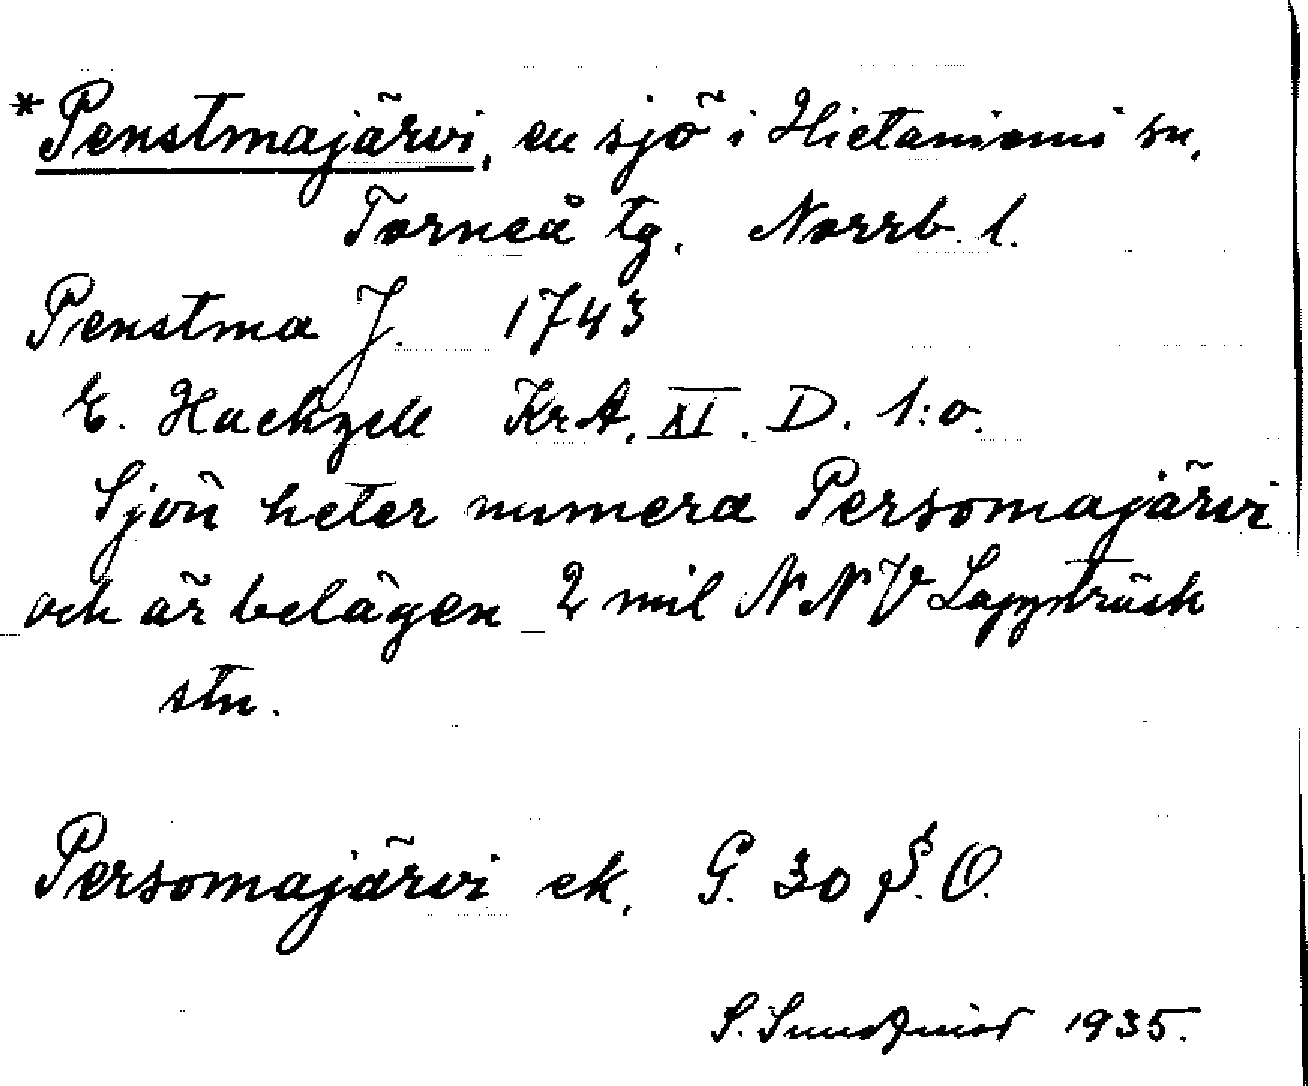 *Penstmajärvi, en sjö i Hietaniemi sn,
Torneå tg. Norrb. l.
Penstma J. 1743
E. Hackzell KrA. XI. D. 1:o.
Sjön heter numera Persomajärvi
och är belägen 2 mil NNV Lappträsk
stn.
Persomajärvi ek. G. 30 S.O.
S. Sundqvist 1935.